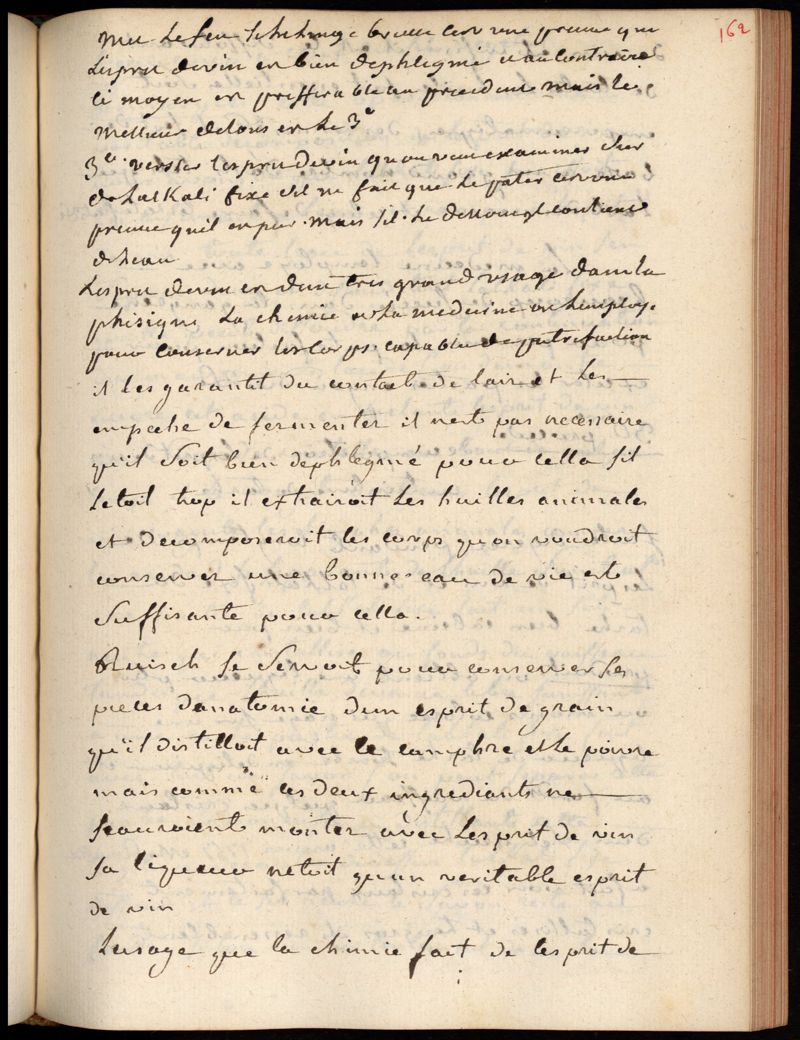 162
met le feu si le linge brule c'est une preuve que
lesprit de vin est bien dephlegmé et au contraire
le moyen est prefferable au precedent mais le
meilleur de tous est le 3e
3e versés lesprit de vin qu'on veut examiner sur
de lalkali fixe s'il ne fait que se pater cest une
preuve quil est pur mais sil se dissout il contient
de leau
Lesprit de vin est dun tres grand usage dans la
phisique la chimie et la medecine on lemploye
pour conserver les corps capables de putrefaction
il les garantit du contact de lair et les
empeche de fermenter il nest pas necessaire
qu'il soit bien dephlegmé pour cella sil
letoit trop il extrairoit les huilles animales
et decomposeroit les corps qu'on voudroit
conserver une bonne eau de vie est
suffisante pour cella.
Ruisch se servoit pour conserver ses
pieces danatomie dun esprit de grain
qu'il distilloit avec le camphre et le poivre
mais comme ces deux ingrediants ne
scauroient monter avec lesprit de vin
sa liqueur netoit qu'un veritable esprit
de vin
Lusage que la chimie fait de lesprit de